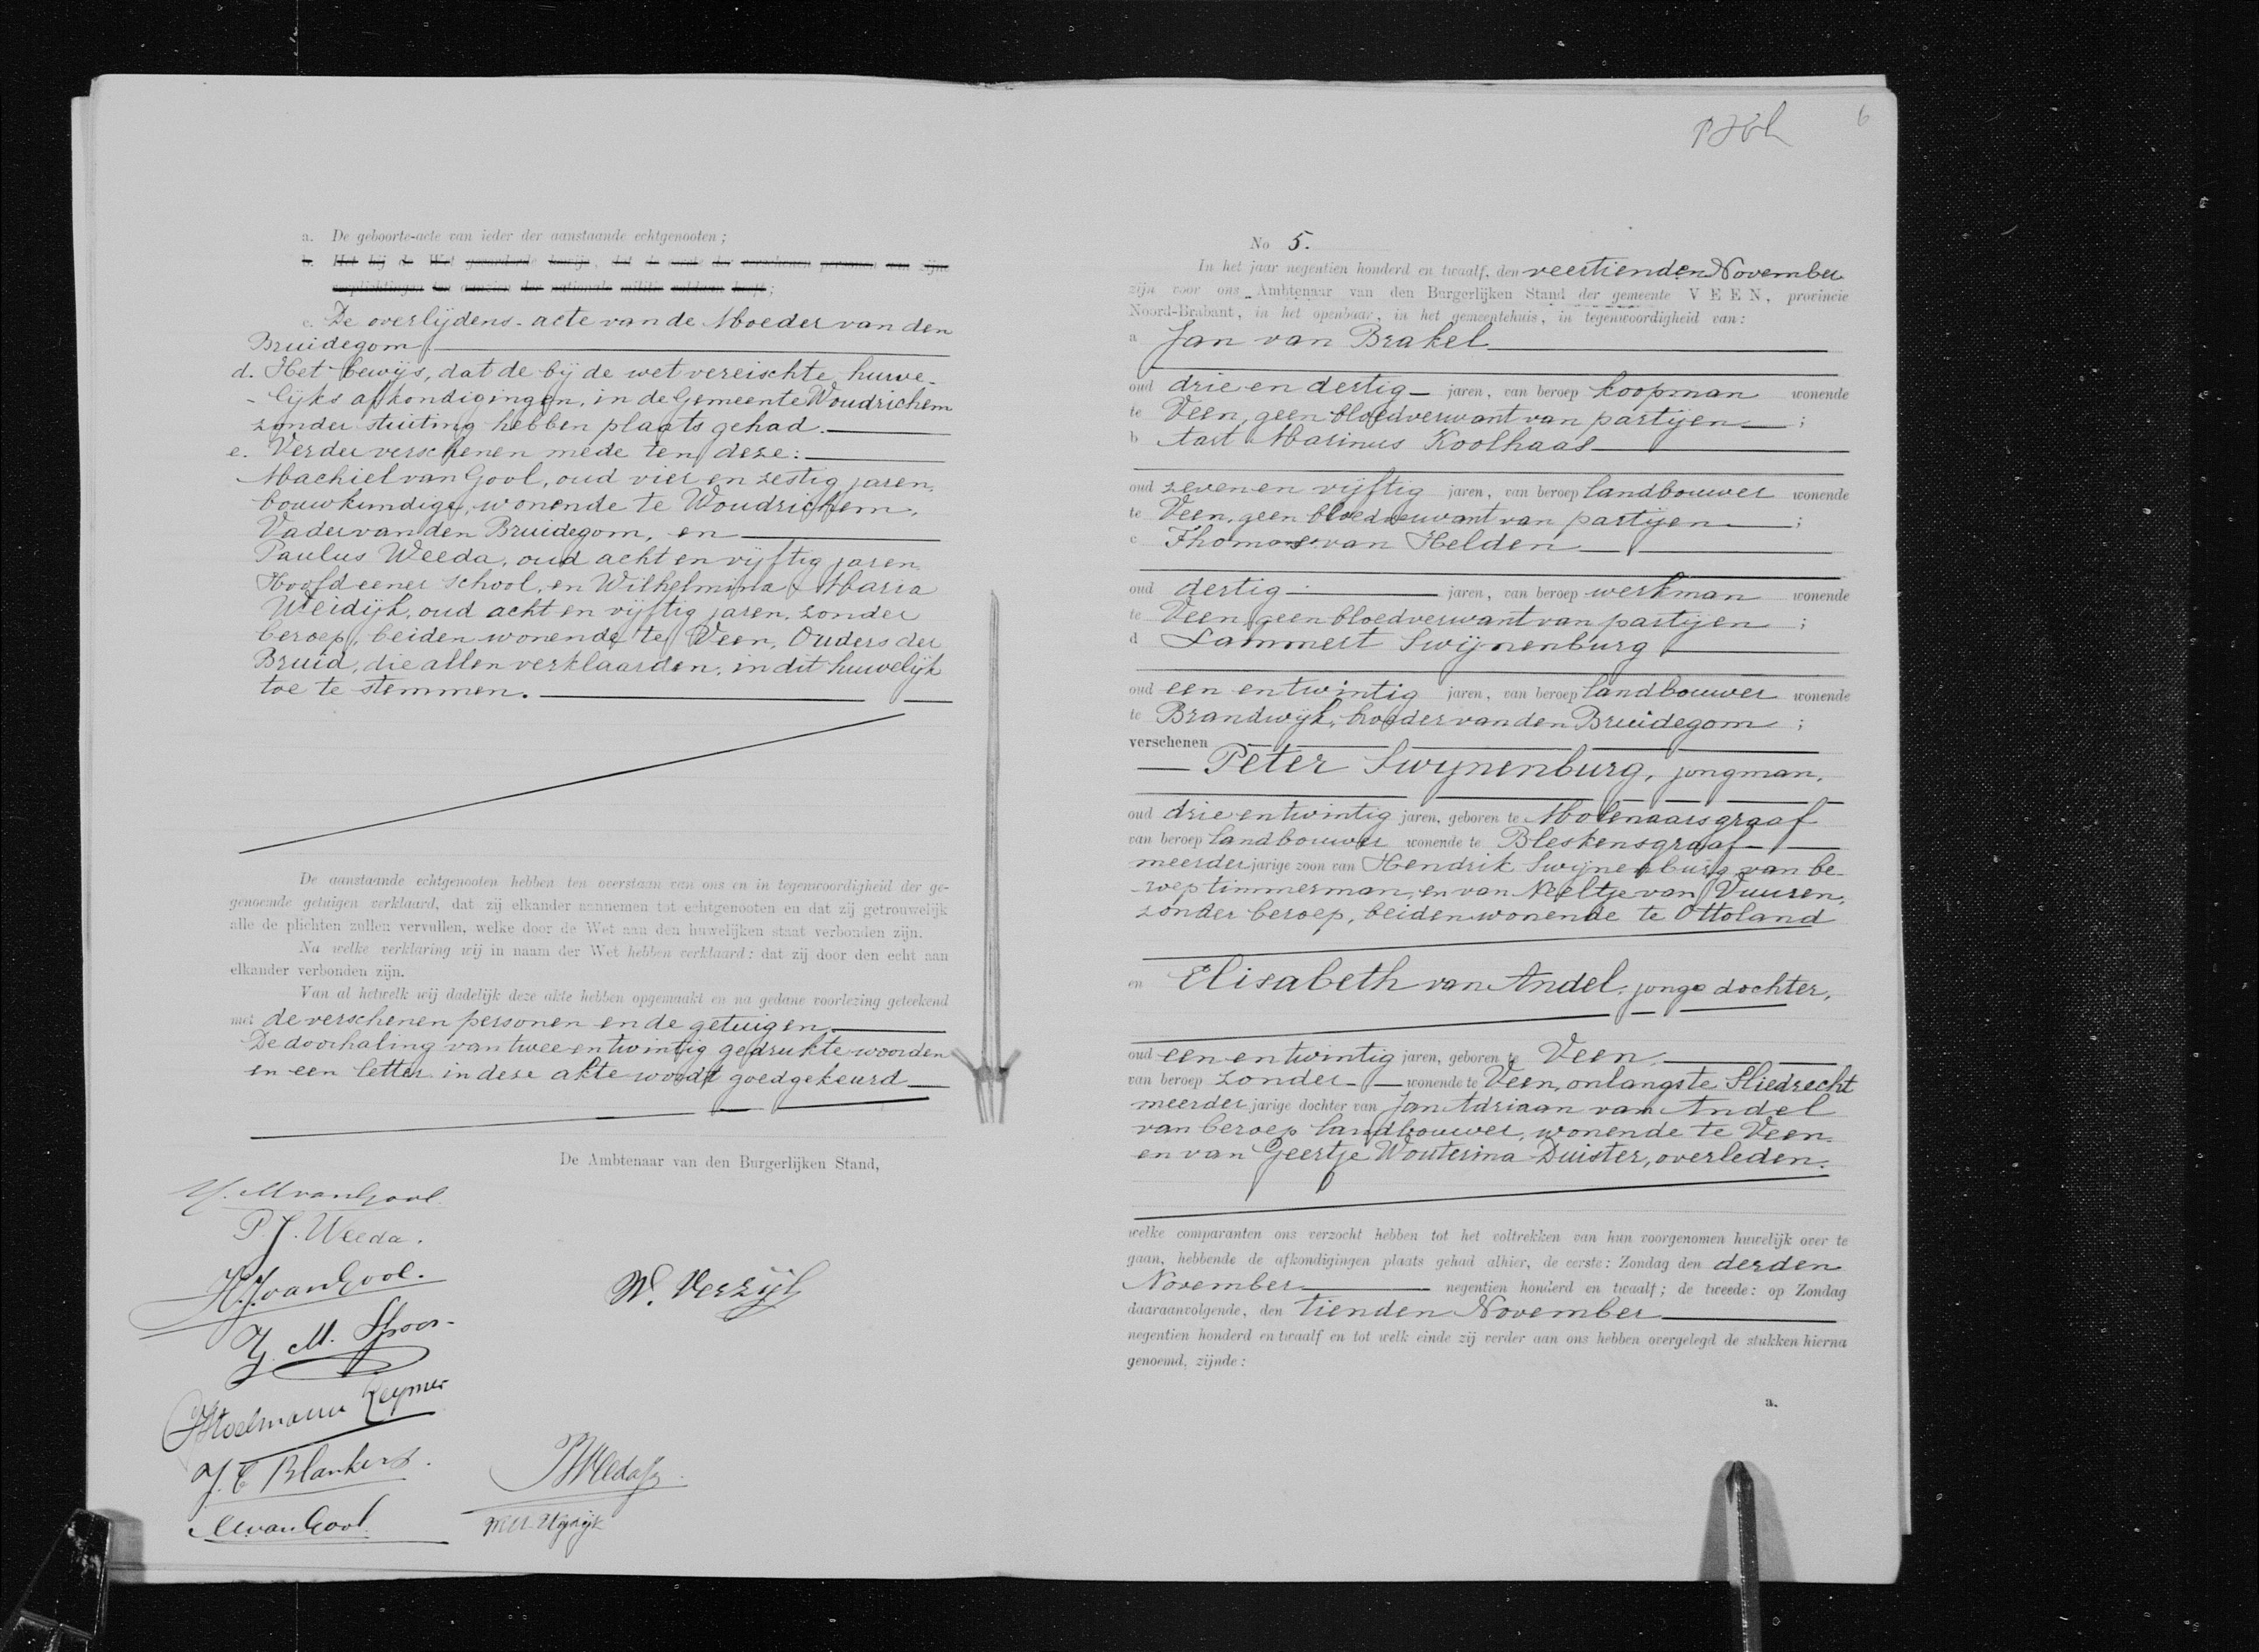 a. De geboorte-acte van ieder der aanstaande echtgenooten;
b. Het bij de Wet gevorderde bewijs, dat de eerste der verschenen personen aan zijne
verplichtingen ten aanzien der nationale militie voldaan heeft;
c. De overlijdens-acte van de Moeder van den
Bruidegom.
d. Het bewijs, dat de bij de wet vereischte huwe-
-lijks afkondigingen, in de Gemeente Woudrichem
zonder stuiting hebben plaats gehad.
e. Verder verschenen mede ten deze:
Machiel van Gool, oud vier en zestig jaren,
bouwkundige, wonende te Woudrichem,
Vader van den Bruidegom, en
Paulus Weeda, oud acht en vijftig jaren
Hoofd eener school, en Wilhelmina Maria
Uleidijk, oud acht en vijftig jaren, zonder
beroep, beiden wonende te Veen, Ouders der
Bruid, die allen verklaarden, in dit huwelijk
toe te stemmen.
De aanstaande echtgenooten hebben ten overstaan van ons en in tegenwoordigheid der ge-
genoemde getuigen verklaard, dat zij elkander aannemen tot echtgenooten en dat zij getrouwelijk
alle de plichten zullen vervullen, welke door de Wet aan den huwelijken staat verbonden zijn.
Na welke verklaring wij in naam der Wet hebben verklaard: dat zij door den echt aan
elkander verbonden zijn.
Van al hetwelk wij dadelijk deze akte hebben opgemaakt en na gedane voorlezing geteekend
met de verschenen personen en de getuigen.
De doorhaling van twee en twintig gedrukte woorden
en een letter in deze akte wordt goedgekeurd
De Ambtenaar van den Burgerlijken Stand,
M van Gool
P. J. Weeda.
H. J. van Gool.
W. Verzijl
J. M. Spoor
J. C Blankers.
M van Gool
6
No 5.
In het jaar negentien honderd en twaalf, den veertienden November
zijn voor ons Ambtenaar van den Burgerlijken Stand der gemeente VEEN, provincie
Noord-Brabant, in het openbaar, in het gemeentehuis, in tegenwoordigheid van:
a Jan van Brakel
oud drie en dertig jaren, van beroep koopman wonende
te Veen, geen bloedverwant van partijen;
b Aart Marinus Koolhaas
oud zeven en vijftig jaren, van beroep landbouwer wonende
te Veen, geen bloedverwant van partijen;
c Thomas van Helden
oud dertig jaren, van beroep werkman wonende
te Veen, geen bloedverwant van partijen;
d Lammert Swijnenburg
oud een en twintig jaren, van beroep landbouwer wonende
te Brandwijk, broeder van den Bruidegom;
verschenen
Peter Swijnenburg, jongman,
oud drie en twintig jaren, geboren te Molenaarsgraaf
van beroep landbouwer wonende te Bleskensgraaf
meerderjarige zoon van Hendrik Swijnenburg van be-
-roep timmerman, en van Neeltje van Vuuren,
zonder beroep, beiden wonende te Ottoland
en Elisabeth van Andel, jonge dochter,
oud een en twintig jaren, geboren te Veen,
van beroep zonder wonende te Veen, onlangs te Sliedrecht
meerderjarige dochter van Jan Adriaan van Andel
van beroep landbouwer, wonende te Veen
en van Geertje Wouterina Duister, overleden.
welke comparanten ons verzocht hebben tot het voltrekken van hun voorgenomen huwelijk over te
gaan, hebbende de afkondigingen plaats gehad alhier, de eerste: Zondag den derden
November negentien honderd en twaalf; de tweede: op Zondag
daaraanvolgende, den tienden November
negentien honderd en twaalf en tot welk einde zij verder aan ons hebben overgelegd de stukken hierna
genoemd, zijnde:
a.